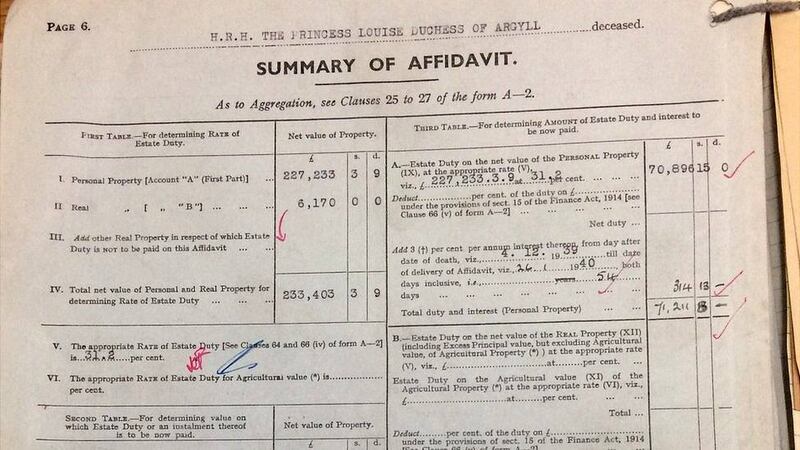 PAGE 6.
H.R.H. THE PRINCESS LOUISE DUCHESS OF ARGYLL deceased.
SUMMARY OF AFFIDAVIT.
As to Aggregation, see Clauses 25 to 27 of the form A—2.
FIRST TABLE.—For determining RATE of
Estate Duty.
Net value of Property.
£ s. d.
I. Personal Property [Account "A" (First Part)] ... 227,233 3 9
II Real „ [ „ "B."] ... ... 6,170 0 0
III. Add other Real Property in respect of which Estate
Duty is NOT to be paid on this Affidavit ... ...
IV. Total net value of Personal and Real Property for
determining Rate of Estate Duty ... ... 233,403 3 9
V. The appropriate RATE of Estate Duty [See Clauses 64 and 66 (iv) of form A—2]
is 31.2 per cent.
VI. The appropriate RATE of Estate Duty for Agricultural value (*) is
per cent.
SECOND TABLE.—For determining value on
which Estate Duty or an instalment thereof
is to be now paid.
Net value of Property.
£ s. d.
THIRD TABLE.—For determining AMOUNT of Estate Duty and interest to
be now paid.
£ s. d.
A.—Estate Duty on the net value of the PERSONAL Property
(IX), at the appropriate rate (V),
viz., £ 227,233.3.9 at 31.2 per cent. ... ... 70,896 15 0
Deduct per cent. of the duty on £
under the provisions of sect. 15 of the Finance Act, 1914 [see
Clause 66 (v) of form A—2] ... ... ... ...
Net duty ...
Add 3 (†) per cent. per annum interest thereon, from day after
date of death, viz., 4. 12. 1939 till date
of delivery of Affidavit, viz., 26. 1 1940, both
days inclusive, i.e., years 54
days ... ... ... ... 314 13 —
Total duty and interest (Personal Property) ... ... 71,211 8 —
B.—Estate Duty on the net value of the REAL Property (XII)
(including Excess Principal value, but excluding Agricultural
value, of Agricultural Property (*) ) at the appropriate rate
(V), viz., £ at per cent. ...
Estate Duty on the Agricultural value (XI) of the
Agricultural Property (*) at the appropriate rate (VI), viz.,
£ at per cent. ... ...
Total ...
Deduct per cent. of the duty on £
under the provisions of sect. 15 of the Finance Act, 1914